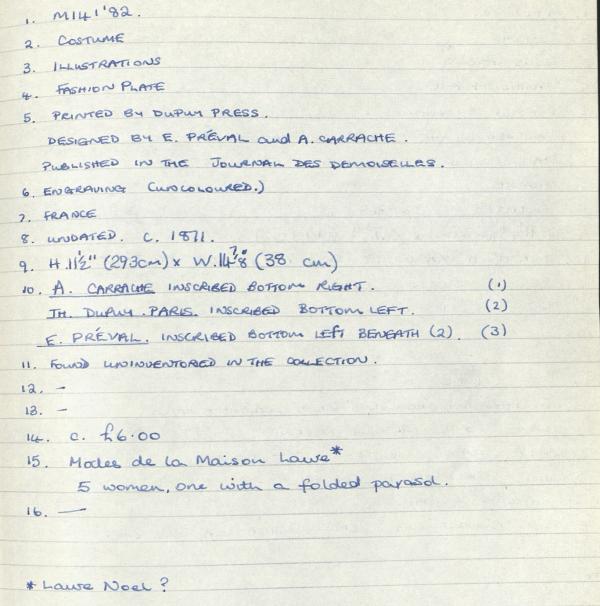 1. M141'82.
2. COSTUME
3. ILLUSTRATIONS
4. FASHION PLATE
5. PRINTED BY DUPUY PRESS.
DESIGNED BY E. PRÉVAL and A. CARRACHE.
PUBLISHED IN THE JOURNAL DES DEMOISELLES.
6. ENGRAVING (UNCOLOURED.)
7. FRANCE
8. UNDATED. C. 1871.
9. H.11½" (293cm) x W.14⅞ (38 cm)
10. A. CARRACHE INSCRIBED BOTTOM RIGHT. (1)
TH. DUPUY. PARIS. INSCRIBED BOTTOM LEFT. (2)
E. PRÉVAL. INSCRIBED BOTTOM LEFT BENEATH (2). (3)
11. FOUND UNINVENTORED IN THE COLLECTION.
12. –
13. –
14. c. £6.00
15. Modes de la Maison Laure*
5 women, one with a folded parasol.
16. —
* Laure Noel ?